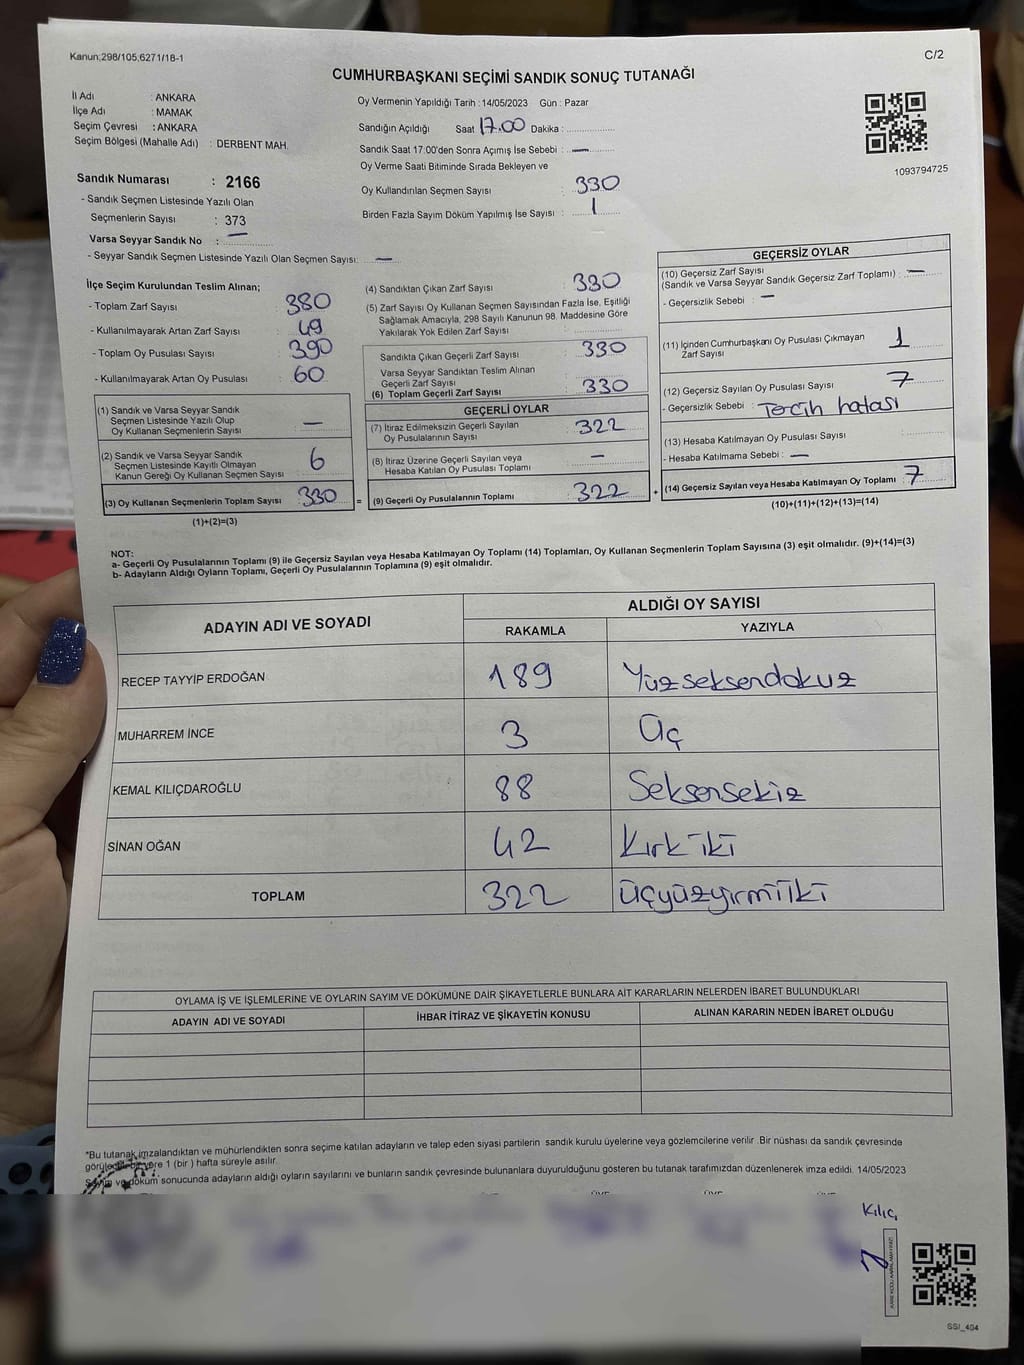 Kanun;298/105,6271/18-1
C/2
CUMHURBAŞKANI SEÇİMİ SANDIK SONUÇ TUTANAĞI
İl Adı : ANKARA
İlçe Adı : MAMAK
Seçim Çevresi : ANKARA
Seçim Bölgesi (Mahalle Adı) : DERBENT MAH.
Sandık Numarası : 2166
- Sandık Seçmen Listesinde Yazılı Olan
Seçmenlerin Sayısı : 373
Varsa Seyyar Sandık No : —
- Seyyar Sandık Seçmen Listesinde Yazılı Olan Seçmen Sayısı: —
Oy Vermenin Yapıldığı Tarih : 14/05/2023 Gün : Pazar
Sandığın Açıldığı Saat 17.00 Dakika :
Sandık Saat 17:00'den Sonra Açımış İse Sebebi : —
Oy Verme Saati Bitiminde Sırada Bekleyen ve
Oy Kullandırılan Seçmen Sayısı : 330
Birden Fazla Sayım Döküm Yapılmış İse Sayısı : 1
1093794725
İlçe Seçim Kurulundan Teslim Alınan;
- Toplam Zarf Sayısı : 380
- Kullanılmayarak Artan Zarf Sayısı : 49
- Toplam Oy Pusulası Sayısı : 390
- Kullanılmayarak Artan Oy Pusulası : 60
(1) Sandık ve Varsa Seyyar Sandık
Seçmen Listesinde Yazılı Olup
Oy Kullanan Seçmenlerin Sayısı : —
(2) Sandık ve Varsa Seyyar Sandık
Seçmen Listesinde Kayıtlı Olmayan
Kanun Gereği Oy Kullanan Seçmen Sayısı : 6
(3) Oy Kullanan Seçmenlerin Toplam Sayısı : 330
(1)+(2)=(3)
(4) Sandıktan Çıkan Zarf Sayısı : 330
(5) Zarf Sayısı Oy Kullanan Seçmen Sayısından Fazla İse, Eşitliği
Sağlamak Amacıyla, 298 Sayılı Kanunun 98. Maddesine Göre
Yakılarak Yok Edilen Zarf Sayısı :
Sandıkta Çıkan Geçerli Zarf Sayısı : 330
Varsa Seyyar Sandıktan Teslim Alınan
Geçerli Zarf Sayısı :
(6) Toplam Geçerli Zarf Sayısı : 330
GEÇERLİ OYLAR
(7) İtiraz Edilmeksizin Geçerli Sayılan
Oy Pusulalarının Sayısı : 322
(8) İtiraz Üzerine Geçerli Sayılan veya
Hesaba Katılan Oy Pusulası Toplamı : —
= (9) Geçerli Oy Pusulalarının Toplamı : 322 +
GEÇERSİZ OYLAR
(10) Geçersiz Zarf Sayısı
(Sandık ve Varsa Seyyar Sandık Geçersiz Zarf Toplamı) : —
- Geçersizlik Sebebi : —
(11) İçinden Cumhurbaşkanı Oy Pusulası Çıkmayan
Zarf Sayısı : 1
(12) Geçersiz Sayılan Oy Pusulası Sayısı : 7
- Geçersizlik Sebebi : Tercih hatası
(13) Hesaba Katılmayan Oy Pusulası Sayısı :
- Hesaba Katılmama Sebebi : —
(14) Geçersiz Sayılan veya Hesaba Katılmayan Oy Toplamı : 7
(10)+(11)+(12)+(13)=(14)
NOT:
a- Geçerli Oy Pusulalarının Toplamı (9) ile Geçersiz Sayılan veya Hesaba Katılmayan Oy Toplamı (14) Toplamları, Oy Kullanan Seçmenlerin Toplam Sayısına (3) eşit olmalıdır. (9)+(14)=(3)
b- Adayların Aldığı Oyların Toplamı, Geçerli Oy Pusulalarının Toplamına (9) eşit olmalıdır.
ADAYIN ADI VE SOYADI
ALDIĞI OY SAYISI
RAKAMLA YAZIYLA
RECEP TAYYİP ERDOĞAN 189 Yüzseksendokuz
MUHARREM İNCE 3 Üç
KEMAL KILIÇDAROĞLU 88 Seksensekiz
SİNAN OĞAN 42 Kırkiki
TOPLAM 322 Üçyüzyirmiiki
OYLAMA İŞ VE İŞLEMLERİNE VE OYLARIN SAYIM VE DÖKÜMÜNE DAİR ŞİKAYETLERLE BUNLARA AİT KARARLARIN NELERDEN İBARET BULUNDUKLARI
ADAYIN ADI VE SOYADI İHBAR İTİRAZ VE ŞİKAYETİN KONUSU ALINAN KARARIN NEDEN İBARET OLDUĞU
*Bu tutanak imzalandıktan ve mühürlendikten sonra seçime katılan adayların ve talep eden siyasi partilerin sandık kurulu üyelerine veya gözlemcilerine verilir .Bir nüshası da sandık çevresinde
görülebilir yere 1 (bir ) hafta süreyle asılır.
Sayım ve döküm sonucunda adayların aldığı oyların sayılarını ve bunların sandık çevresinde bulunanlara duyurulduğunu gösteren bu tutanak tarafımızdan düzenlenerek imza edildi. 14/05/2023
Kılıç
SSİ_404